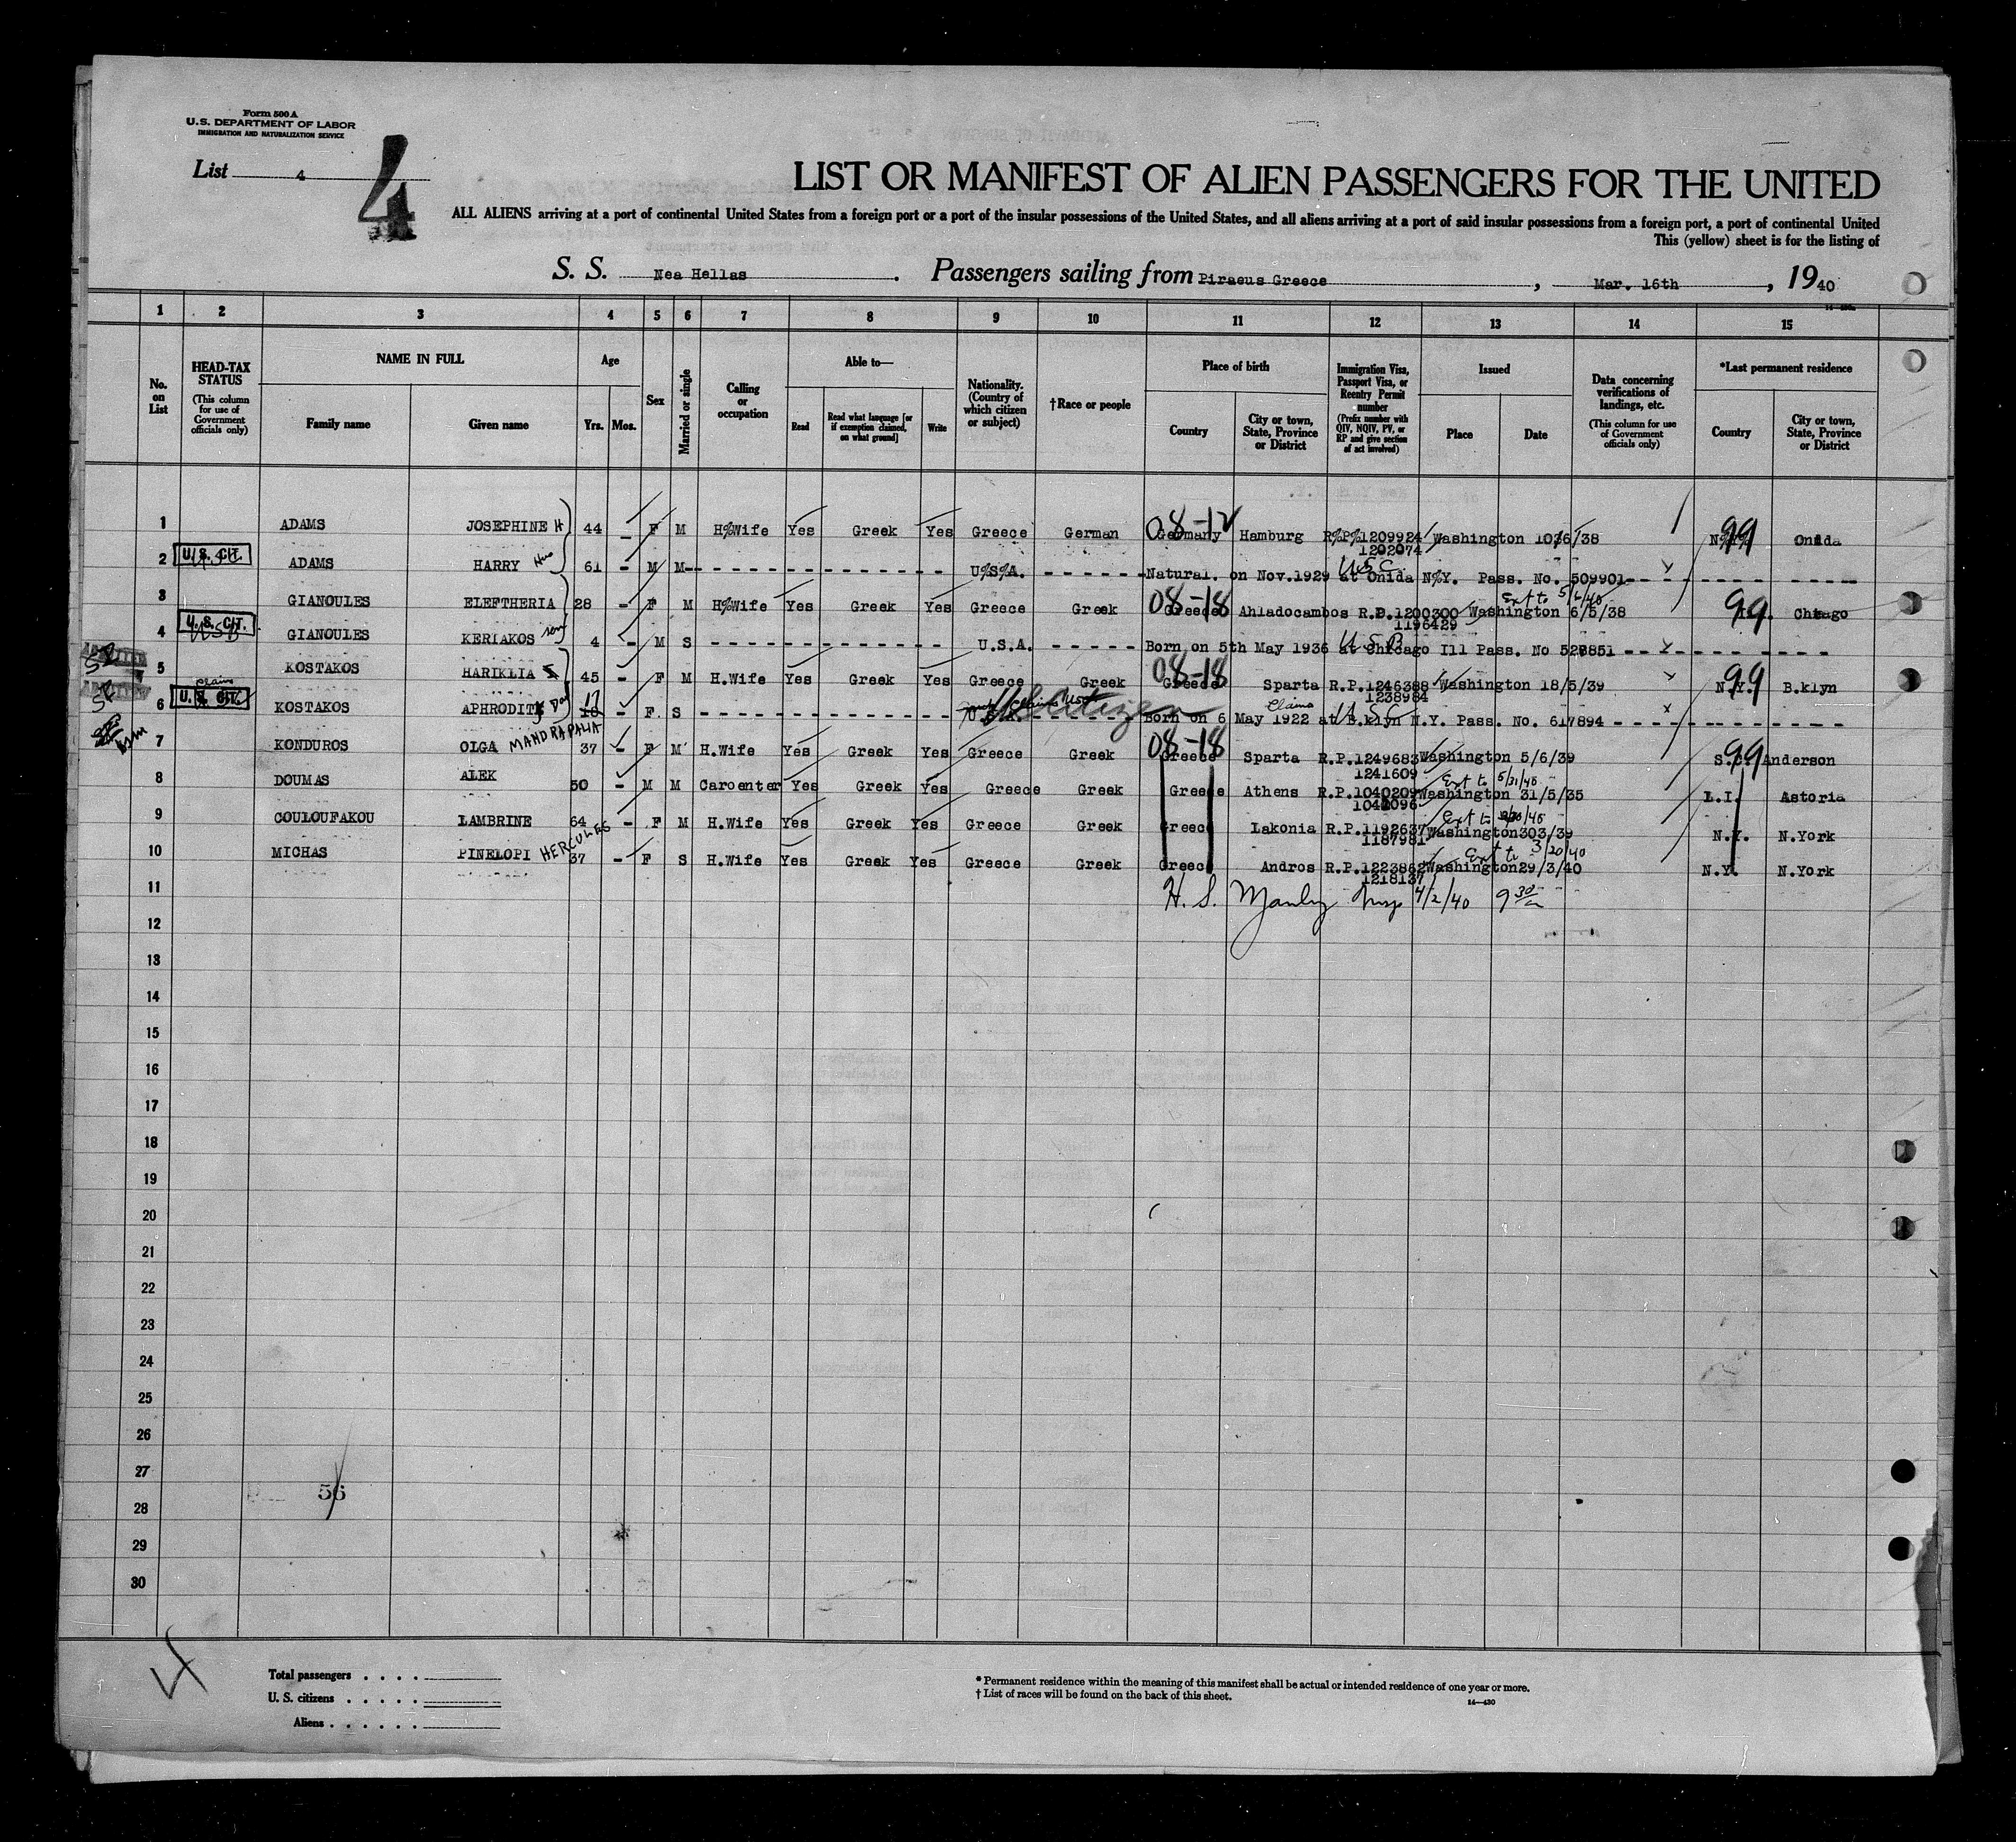 Form 500 A
U. S. DEPARTMENT OF LABOR
IMMIGRATION AND NATURALIZATION SERVICE
List 4
4
LIST OR MANIFEST OF ALIEN PASSENGERS FOR THE UNITED
ALL ALIENS arriving at a port of continental United States from a foreign port or a port of the insular possessions of the United States, and all aliens arriving at a port of said insular possessions from a foreign port, a port of continental United
This (yellow) sheet is for the listing of
S. S. Nea Hellas. Passengers sailing from Piraeus Greece, Mar. 16th, 1940
1 2 3 4 5 6 7 8 9 10 11 12 13 14 15
No. on List
HEAD-TAX STATUS (This column for use of Government officials only)
NAME IN FULL Family name Given name
Age Yrs. Mos.
Sex
Married or single
Calling or occupation
Able to— Read Read what language [or if exemption claimed, on what ground] Write
Nationality. (Country of which citizen or subject)
†Race or people
Place of birth Country City or town, State, Province or District
Immigration Visa, Passport Visa, or Reentry Permit number (Prefix number with QIV, NQIV, PV, or RP and give section of act involved)
Issued Place Date
Data concerning verifications of landings, etc. (This column for use of Government officials only)
*Last permanent residence Country City or town, State, Province or District
1 ADAMS JOSEPHINE H 44 - F M H%Wife Yes Greek Yes Greece German 08-12 Germany Hamburg R%P%1209924 1202074 Washington 10/6/38 99 Onida
2 U. S. CIT. ADAMS HARRY 61 - M M U%S%A. Natural. on Nov.1929 at Onida N%Y. Pass. No. 509901 USC
3 GIANOULES ELEFTHERIA 28 - F M H%Wife Yes Greek Yes Greece Greek 08-18 Greece Ahladocambos R.P.1200300 1196429 Washington 6/5/38 Ext to 5/6/40 99 Chicago
4 U. S. CIT. USB GIANOULES KERIAKOS 4 - M S U.S.A. Born on 5th May 1936 at Chicago Ill Pass. No 528851 USB
5 KOSTAKOS HARIKLIA 45 - F M H.Wife Yes Greek Yes Greece Greek 08-18 Greece Sparta R.P.1246388 1238984 Washington 18/5/39 99 N.Y. B.klyn
6 claims U. S. CIT. KOSTAKOS APHRODITY 17 - F. S Citizen Born on 6 May 1922 at B.klyn N.Y. Pass. No. 617894 Claims USC
7 KONDUROS OLGA MANDRAPALIA 37 - F M H.Wife Yes Greek Yes Greece Greek 08-18 Greece Sparta R.P.1249683 1241609 Washington 5/6/39 99 S.C. Anderson
8 DOUMAS ALEK 50 - M M Caroenter Yes Greek Yes Greece Greek Greece Athens R.P.1040209 Washington 31/5/35 Ext to 5/31/40 L.I. Astoria
9 COULOUFAKOU LAMBRINE 64 - F M H.Wife Yes Greek Yes Greece Greek Greece Lakonia R.P.1192637 1187981 Washington 303/39 N.Y. N.York
10 MICHAS PINELOPI HERCULES 37 - F S H.Wife Yes Greek Yes Greece Greek Greece Andros R.P.1223862 1218137 Washington 29/3/40 Ext to 3/20/40 N.Y. N.York
11 H. S. Manly Insp 4/2/40 9 30
12
13
14
15
16
17
18
19
20
21
22
23
24
25
26
27
56
28
29
30
Total passengers
U. S. citizens
Aliens
* Permanent residence within the meaning of this manifest shall be actual or intended residence of one year or more.
† List of races will be found on the back of this sheet.
14—430